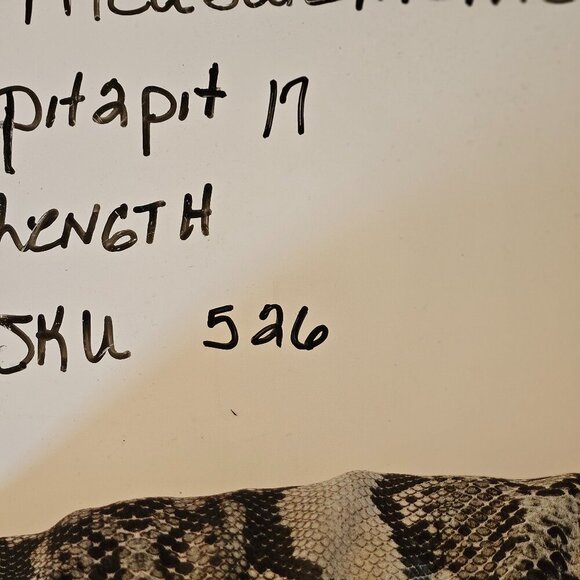 pitapit 17
LENGTH
SKU 526